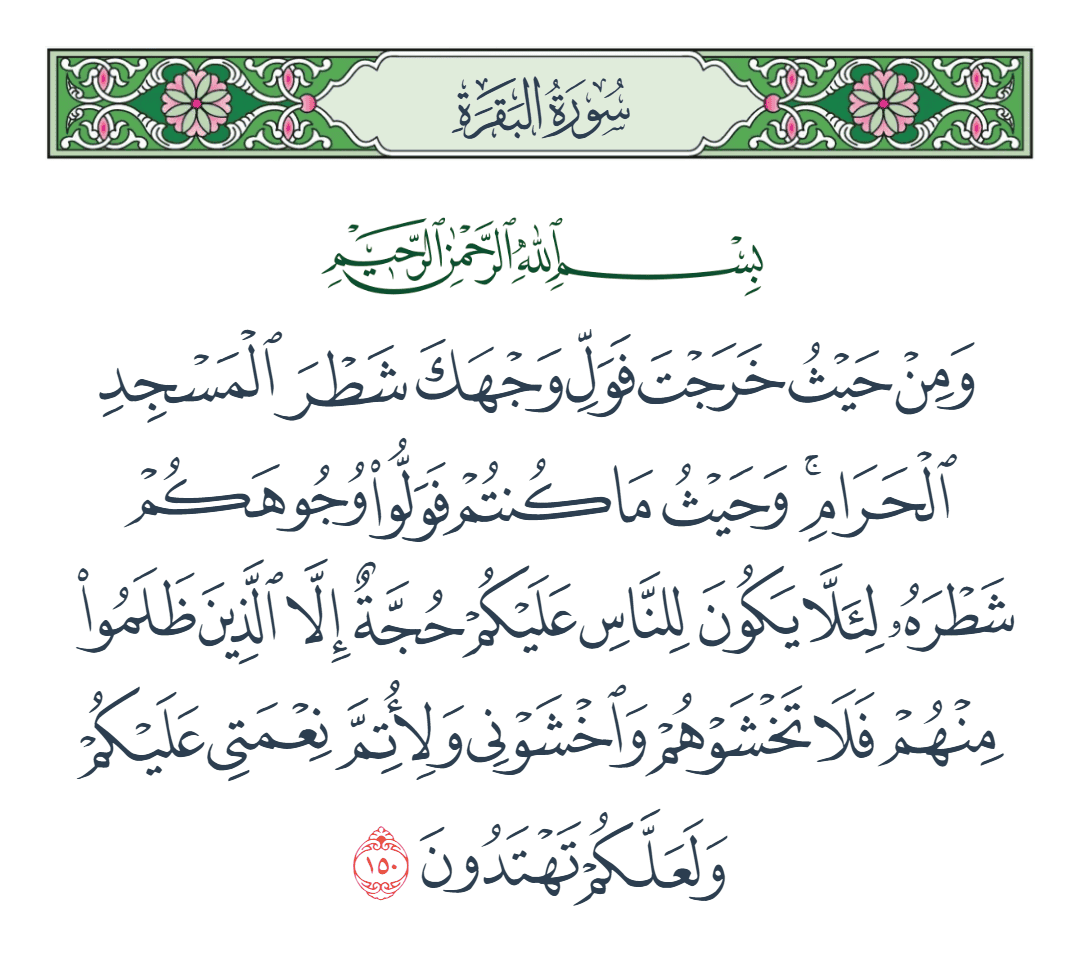 سُورَةُ البَقَرَةِ
بِسْمِ ٱللَّهِ ٱلرَّحْمَٰنِ ٱلرَّحِيمِ
وَمِنْ حَيْثُ خَرَجْتَ فَوَلِّ وَجْهَكَ شَطْرَ ٱلْمَسْجِدِ
ٱلْحَرَامِ ۚ وَحَيْثُ مَا كُنتُمْ فَوَلُّوا۟ وُجُوهَكُمْ
شَطْرَهُۥ لِئَلَّا يَكُونَ لِلنَّاسِ عَلَيْكُمْ حُجَّةٌ إِلَّا ٱلَّذِينَ ظَلَمُوا۟
مِنْهُمْ فَلَا تَخْشَوْهُمْ وَٱخْشَوْنِى وَلِأُتِمَّ نِعْمَتِى عَلَيْكُمْ
وَلَعَلَّكُمْ تَهْتَدُونَ ١٥٠